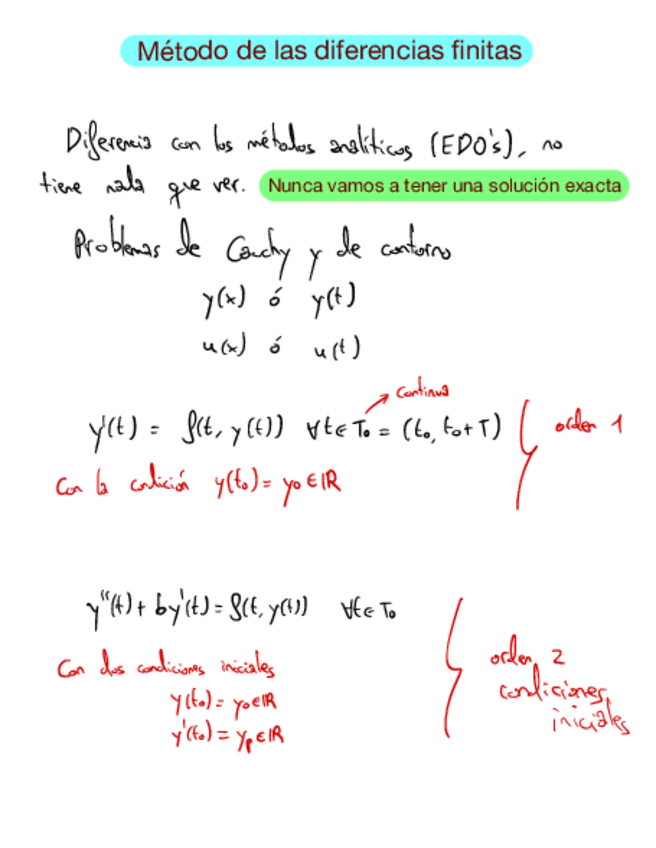 Método de las diferencias finitas
Diferencia con los métodos analíticos (EDO's), no
tiene nada que ver. Nunca vamos a tener una solución exacta
Problemas de Cauchy y de contorno
y(x) ó y(t)
u(x) ó u(t)
continua
y'(t) = f(t, y(t)) ∀t ∈ T₀ = (t₀, t₀+T) orden 1
Con la condición y(t₀) = y₀ ∈ ℝ
y''(t) + by'(t) = f(t, y(t)) ∀t ∈ T₀
Con dos condiciones iniciales
orden 2
y(t₀) = y₀ ∈ ℝ
condiciones
iniciales
y'(t₀) = yₚ ∈ ℝ